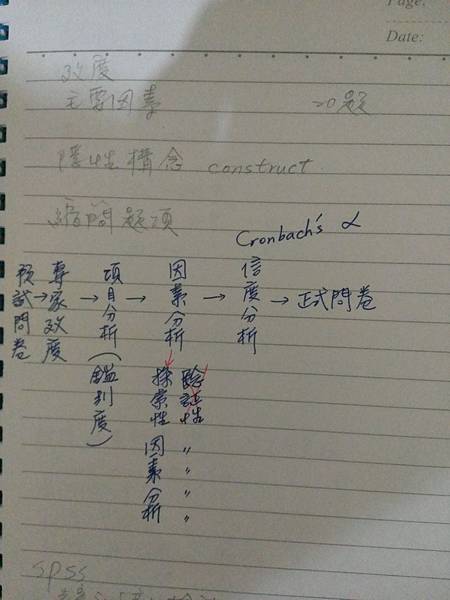 Page:
Date:
效度
主要因素 20題
隱性構念 construct
縮問題項
Cronbach's α
預試問卷→專家效度→項目分析(鑑別度)→因素分析→信度分析→正式問卷
探索性因素分析
驗証性〃〃〃〃
spss